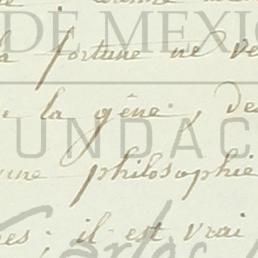 DE MEXIC
la fortune ne ve
la gêne, de
UNDAC
philosophie
il est vrai